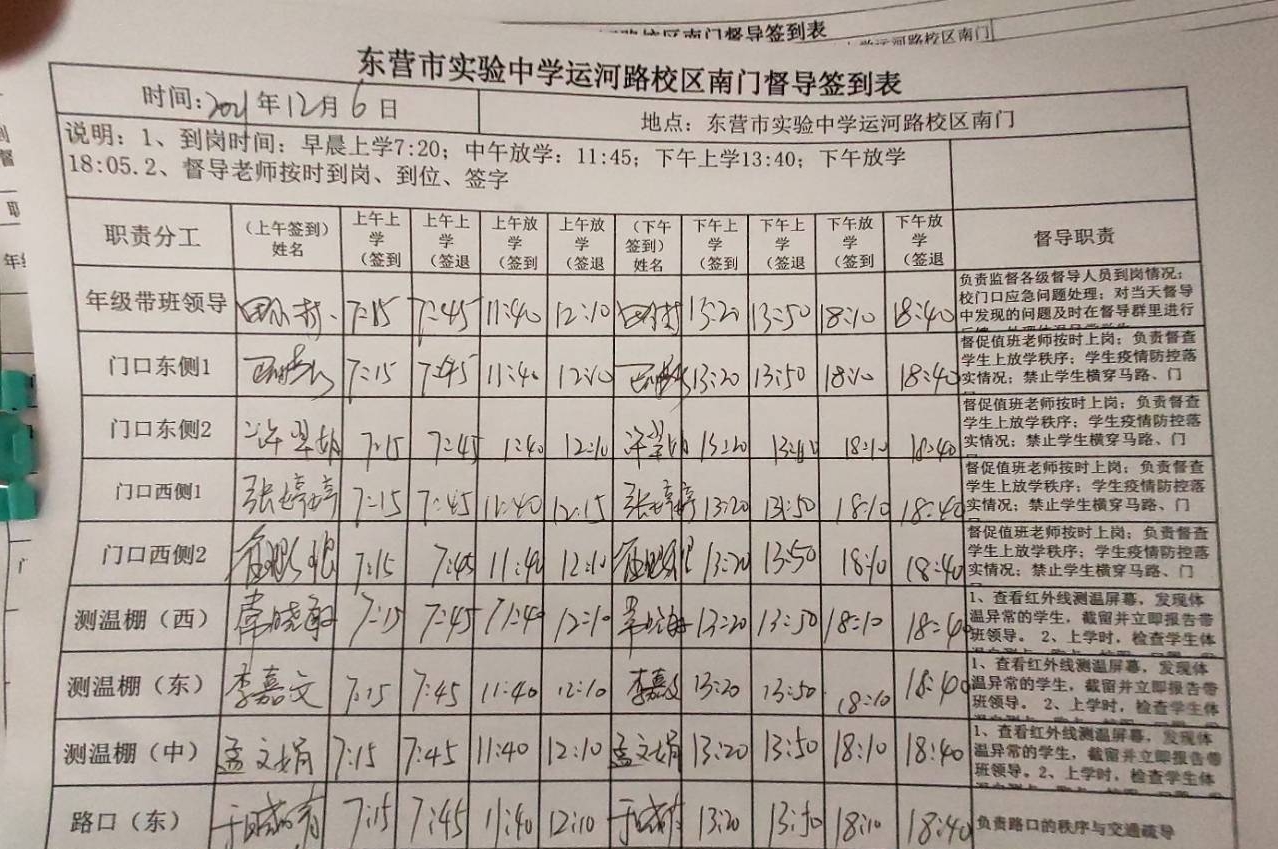 校区南门督导签到表
学运河路校区南门
东营市实验中学运河路校区南门督导签到表
时间:2021年12月6日 地点：东营市实验中学运河路校区南门
说明：1、到岗时间：早晨上学7:20；中午放学：11:45；下午上学13:40；下午放学
18:05.2、督导老师按时到岗、到位、签字
职责分工 （上午签到）姓名 上午上学（签到 上午上学（签退 上午放学（签到 上午放学（签退 （下午签到）姓名 下午上学（签到 下午上学（签退 下午放学（签到 下午放学（签退 督导职责
年级带班领导 7:15 7:45 11:40 12:10 13:20 13:50 18:10 18:40
负责监督各级督导人员到岗情况；
校门口应急问题处理；对当天督导
中发现的问题及时在督导群里进行
门口东侧1 7:15 7:45 11:40 12:10 13:20 13:50 18:10 18:40
督促值班老师按时上岗；负责督查
学生上放学秩序；学生疫情防控落
实情况；禁止学生横穿马路、门
门口东侧2 许翠娟 7:15 7:45 1:40 12:10 许翠娟 13:20 18:10 18:40
督促值班老师按时上岗；负责督查
学生上放学秩序；学生疫情防控落
实情况；禁止学生横穿马路、门
门口西侧1 张婷婷 7:15 7:45 11:40 12:15 张婷婷 13:20 13:50 18:10 18:40
督促值班老师按时上岗；负责督查
学生上放学秩序；学生疫情防控落
实情况；禁止学生横穿马路、门
门口西侧2 7:15 7:45 11:40 12:10 13:20 13:50 18:10 18:40
督促值班老师按时上岗；负责督查
学生上放学秩序；学生疫情防控落
实情况；禁止学生横穿马路、门
测温棚（西） 常晓敏 7:15 7:45 11:40 12:10 常晓敏 13:20 13:50 18:10 18:40
1、查看红外线测温屏幕，发现体
温异常的学生，截留并立即报告带
班领导。2、上学时，检查学生体
测温棚（东） 李嘉文 7:15 7:45 11:40 12:10 李嘉文 13:20 13:50 18:10 18:40
1、查看红外线测温屏幕，发现体
温异常的学生，截留并立即报告带
班领导。2、上学时，检查学生体
测温棚（中） 孟文娟 7:15 7:45 11:40 12:10 孟文娟 13:20 13:50 18:10 18:40
1、查看红外线测温屏幕，发现体
温异常的学生，截留并立即报告带
班领导。2、上学时，检查学生体
路口（东） 7:15 7:45 11:40 12:10 13:20 13:50 18:10 18:40 负责路口的秩序与交通疏导